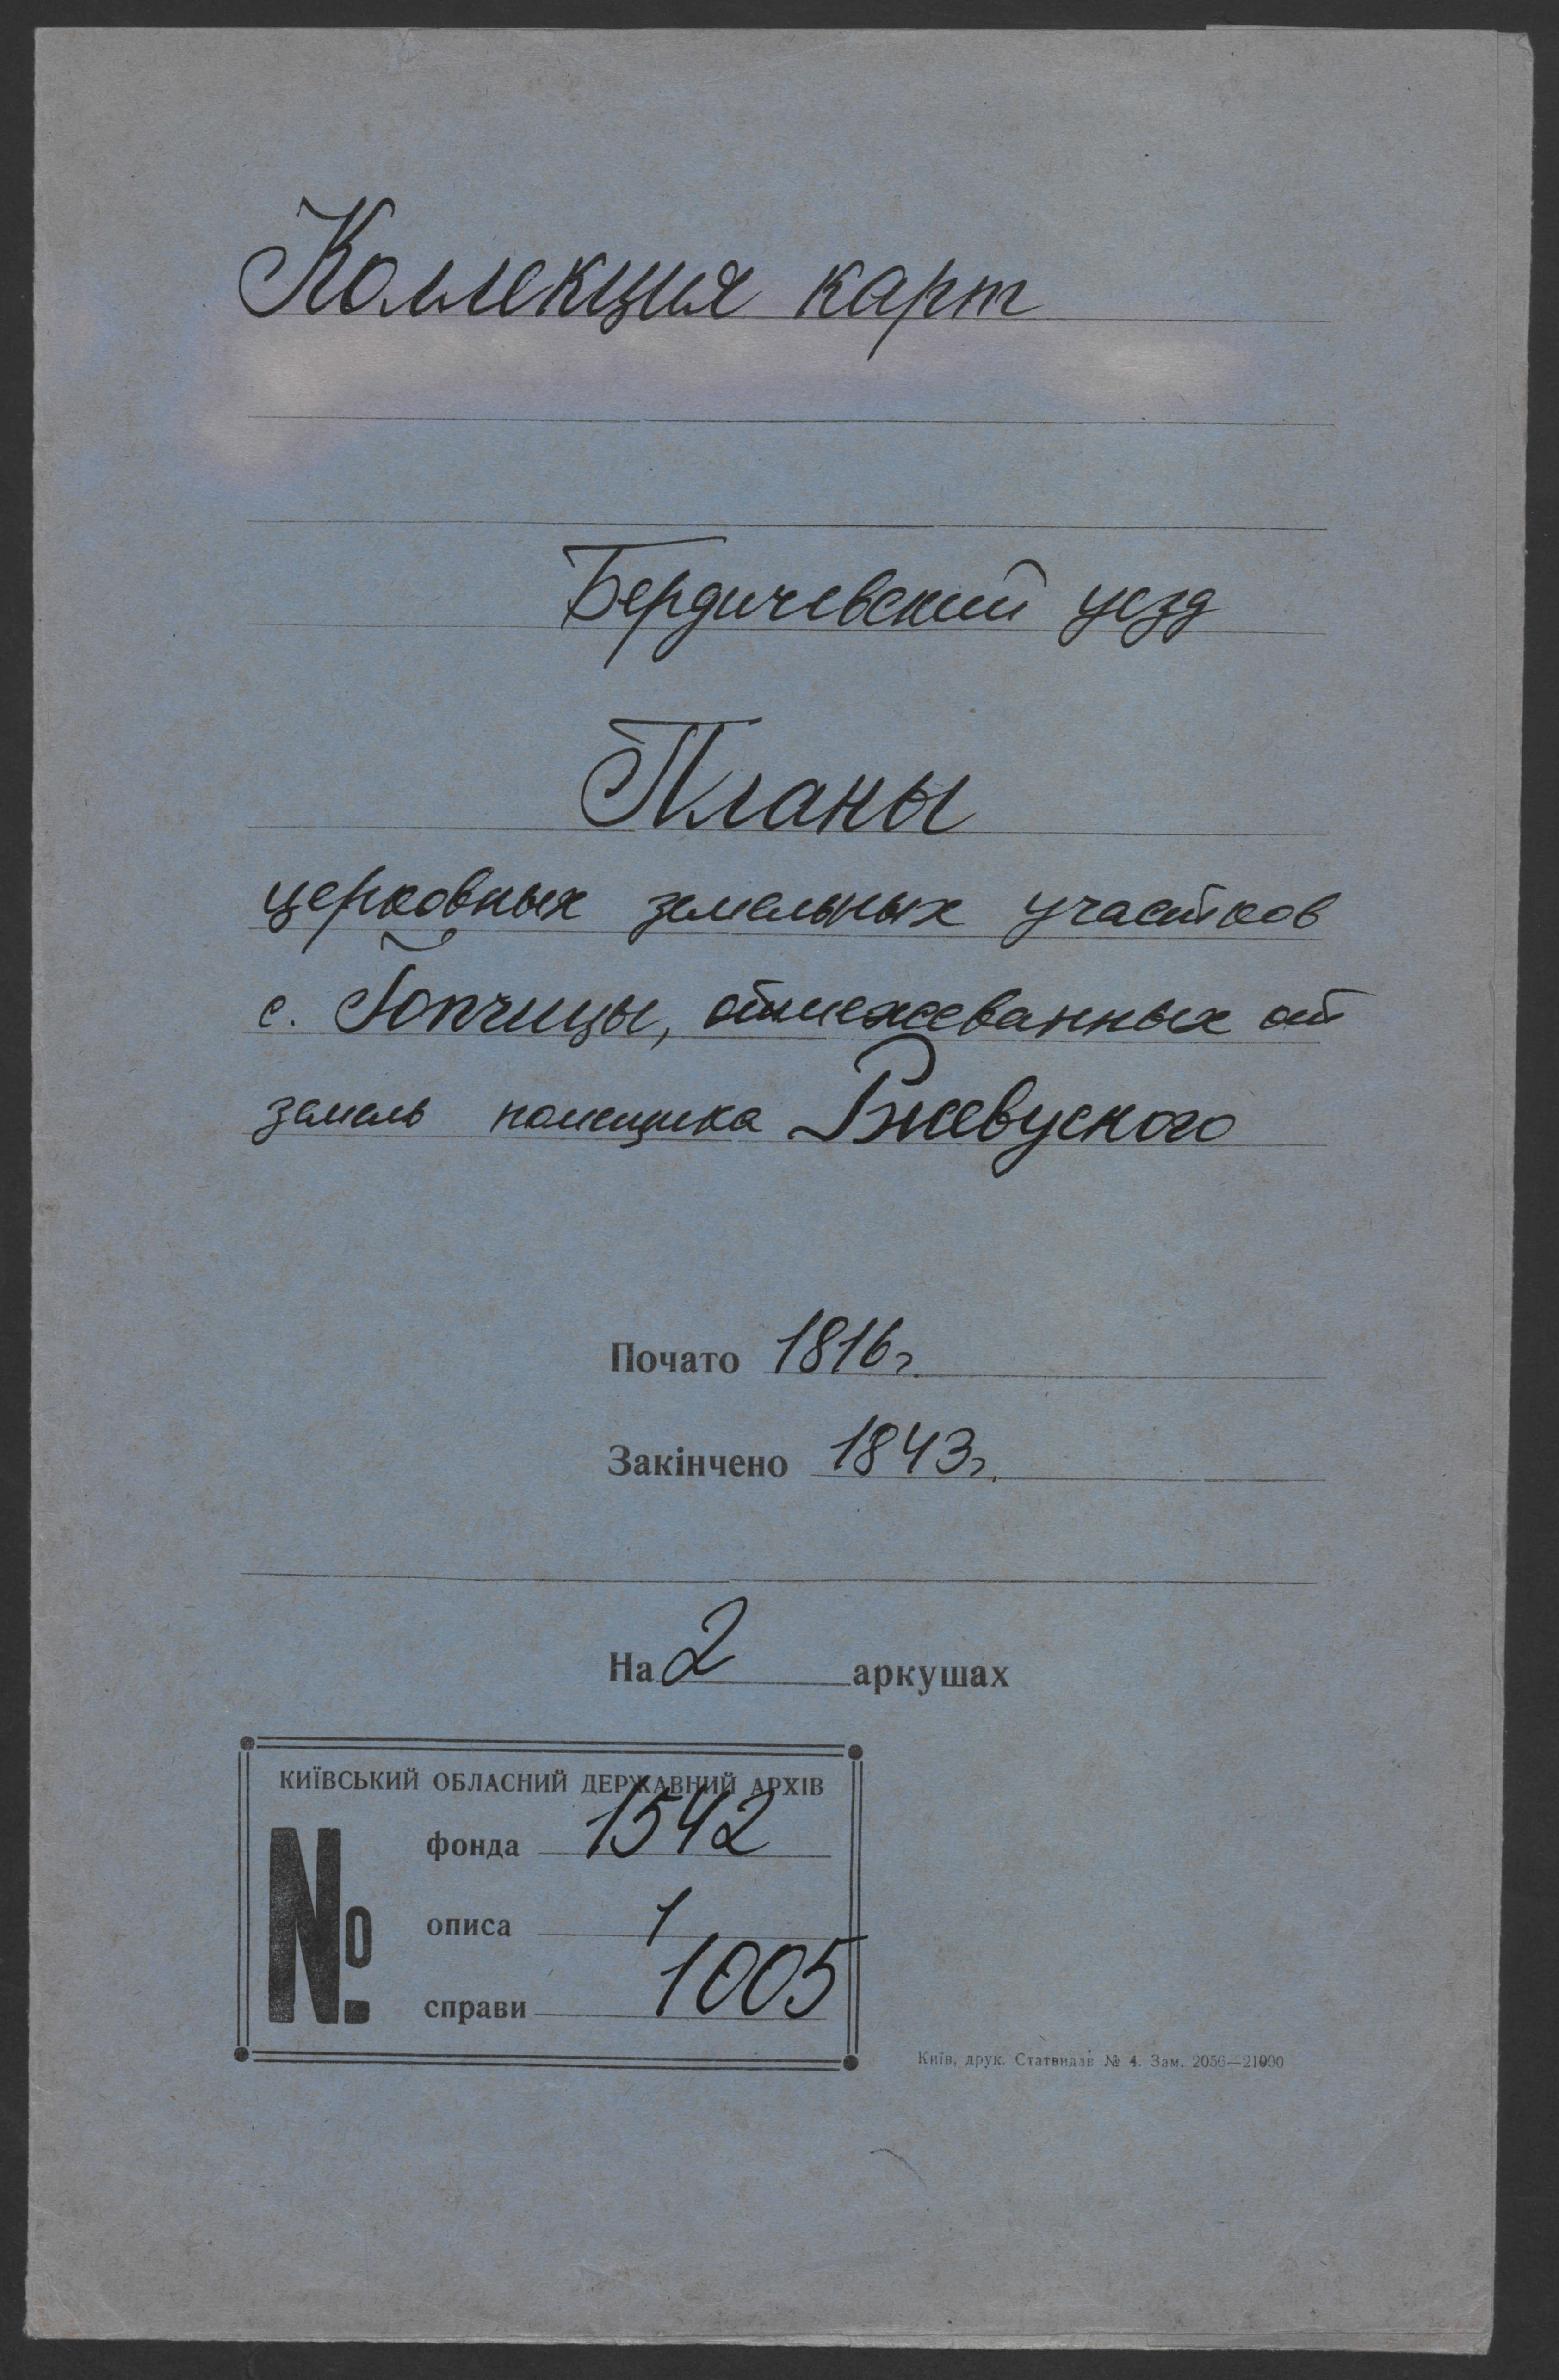 Коллекция карт
Бердичевский уезд
Планы
церковных земельных участков
с. Гопчицы, отмежеванных от
земель помещика Ржевуского
Почато 1816 г.
Закінчено 1843 г.
На 2 аркушах
КИЇВСЬКИЙ ОБЛАСНИЙ ДЕРЖАВНИЙ АРХІВ
№
фонда 1542
описа 1
справи 1005
Київ, друк. Статвидав № 4. Зам. 2056—21000